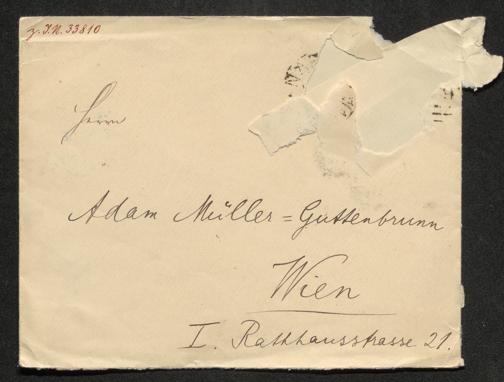 z. I.N. 33810
Herrn
Adam Müller=Guttenbrunn
Wien
I. Rathhausstrasse 21.